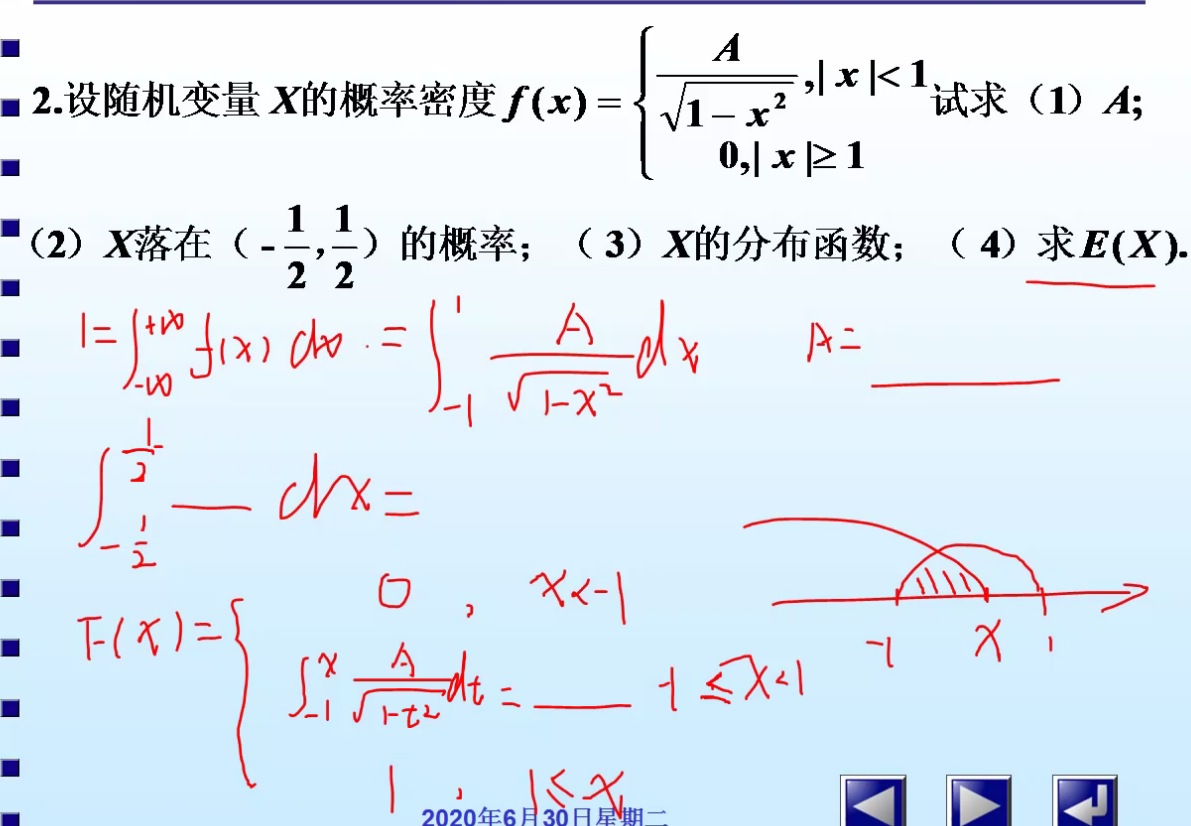 2.设随机变量 X的概率密度 f(x) = { A/√(1−x²) ,| x |< 1 试求（1）A;
0,| x |≥ 1
（2）X落在（-1/2,1/2）的概率；（3）X的分布函数；（4）求E(X).
1=∫_{-∞}^{+∞} f(x) dx = ∫_{-1}^{1} A/√(1-x²) dx A=____
∫_{-1/2}^{1/2} ___ dx =
0 , x<-1
F(x)={ ∫_{-1}^{x} A/√(1-t²) dt = ____ -1≤x<1
-1 x 1
1 , 1≤x
2020年6月30日星期二